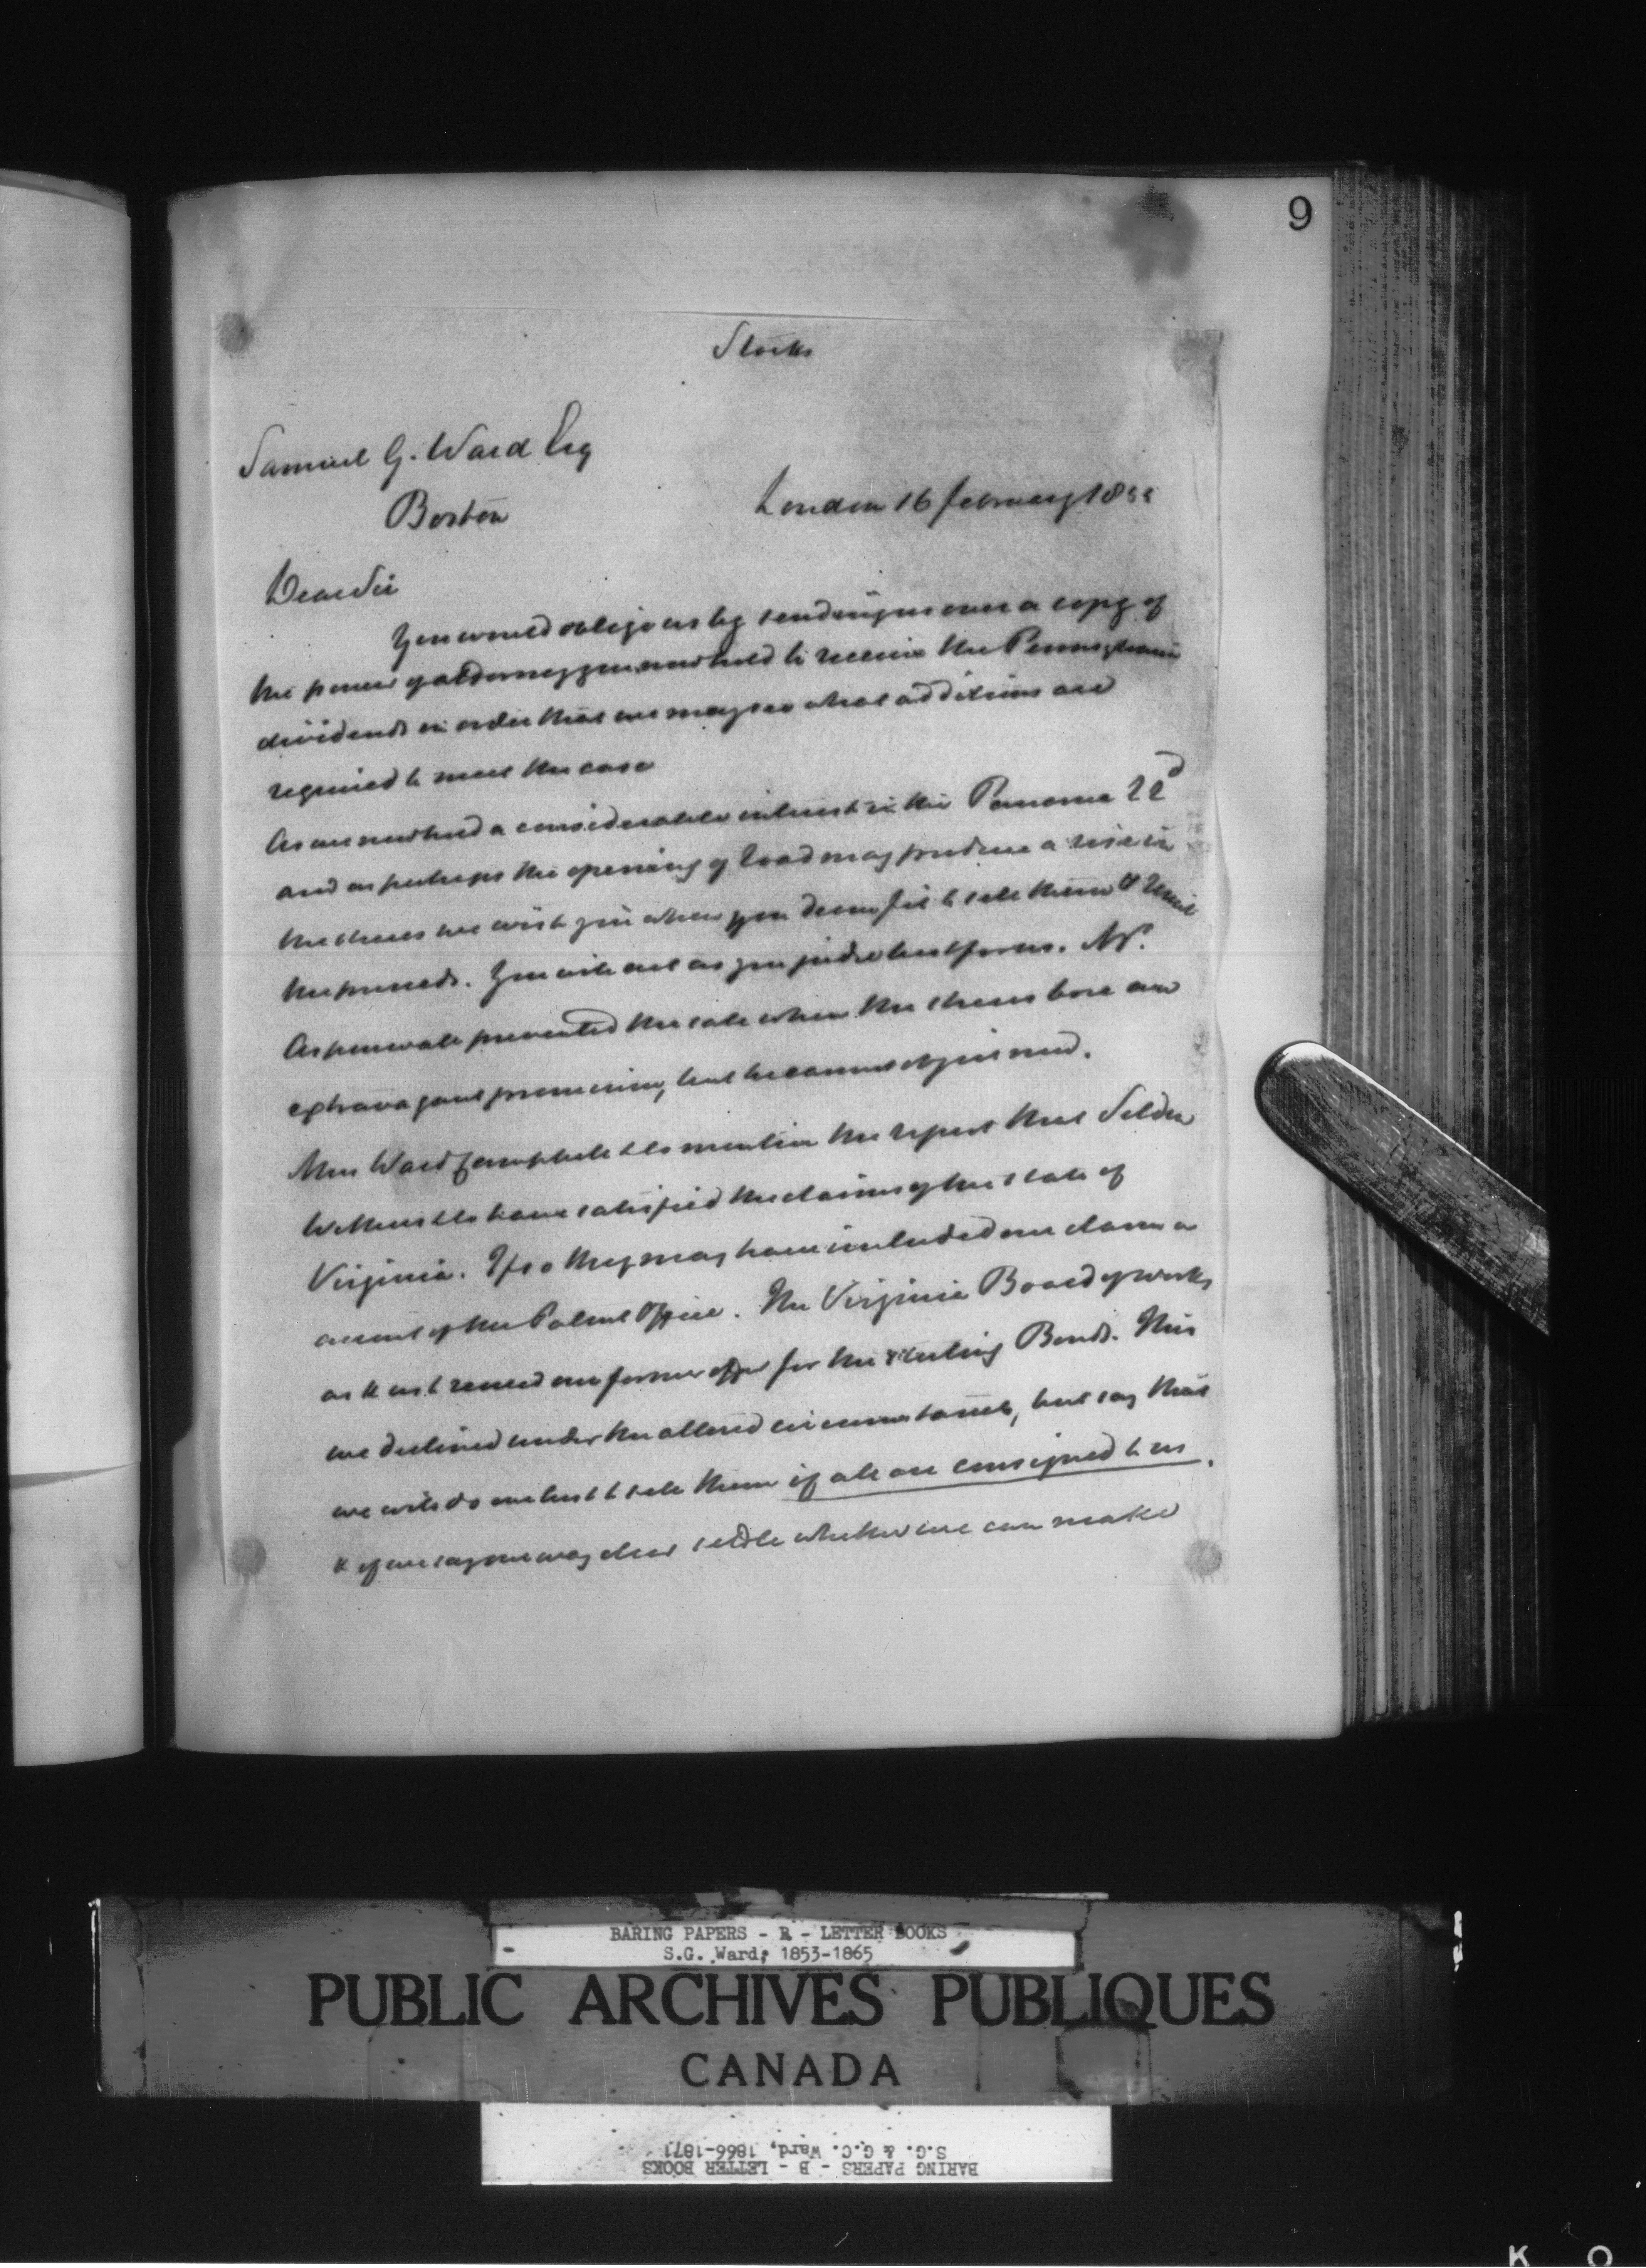 9
Stocks
Samuel G. Ward Esq
Boston
London 16 february 1855
Dear Sir
You would oblige us by sending us over a copy of
the power of attorney you now hold to receive the Pennsylvania
dividends in order that we may see what additions are
required to meet the case
As we now hold a considerable interest in the Panama RRd
and as perhaps the opening of road may produce a rise in
the shares we wish you when you deem fit to sell them & remit
the proceeds. You will act as you judge best for us. Mr.
Aspinwall prevented the sale when the shares bore an
extravagant premium, but he cannot object now.
Mess Ward Campbell & Co mention the report that Selden
Withers & Co have satisfied the claims of the state of
Virginia. If so they may have included our claim on
account of the Patent Office. The Virginia Board of works
ask us to renew our former offer for the sterling Bonds. This
we declined under the altered circumstances, but say that
we will do our best to sell them if all are consigned to us.
& if we say our way clear settle whether we can make
BARING PAPERS - B - LETTER BOOKS
S.G. Ward, 1853-1865
PUBLIC ARCHIVES PUBLIQUES
CANADA
BARING PAPERS - B - LETTER BOOKS
S.G. & G.C. Ward, 1866-1871
K O